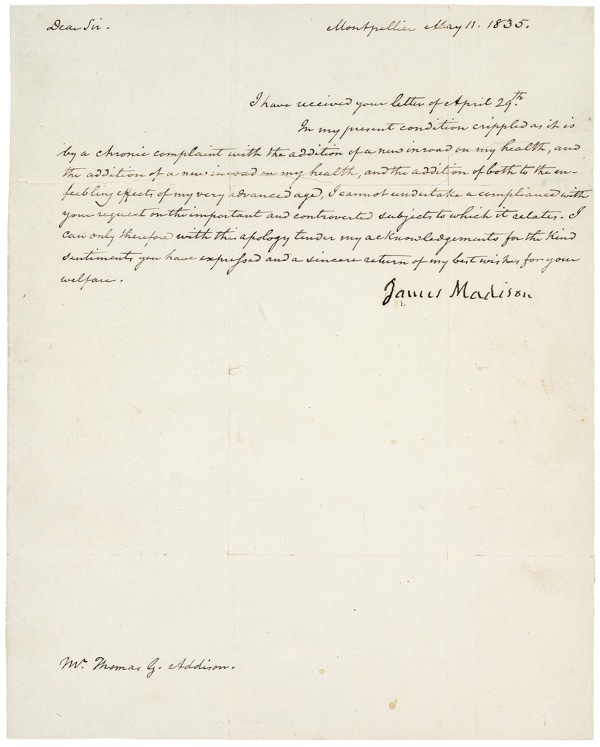 Dear Sir. Montpellier May 11. 1835.
I have received your letter of April 29th
In my present condition crippled as it is
by a chronic complaint with the addition of a new inroad on my health, and
the addition of a new inroad on my health, and the addition of both to the en-
feebling effects of my very advanced age, I cannot undertake a compliance with
your request on the important and controverted subjects to which it relates. I
can only therefore with this apology tender my acknowledgements for the kind
sentiments you have expressed and a sincere return of my best wishes for your
welfare.
James Madison
Mr. Thomas G. Addison.